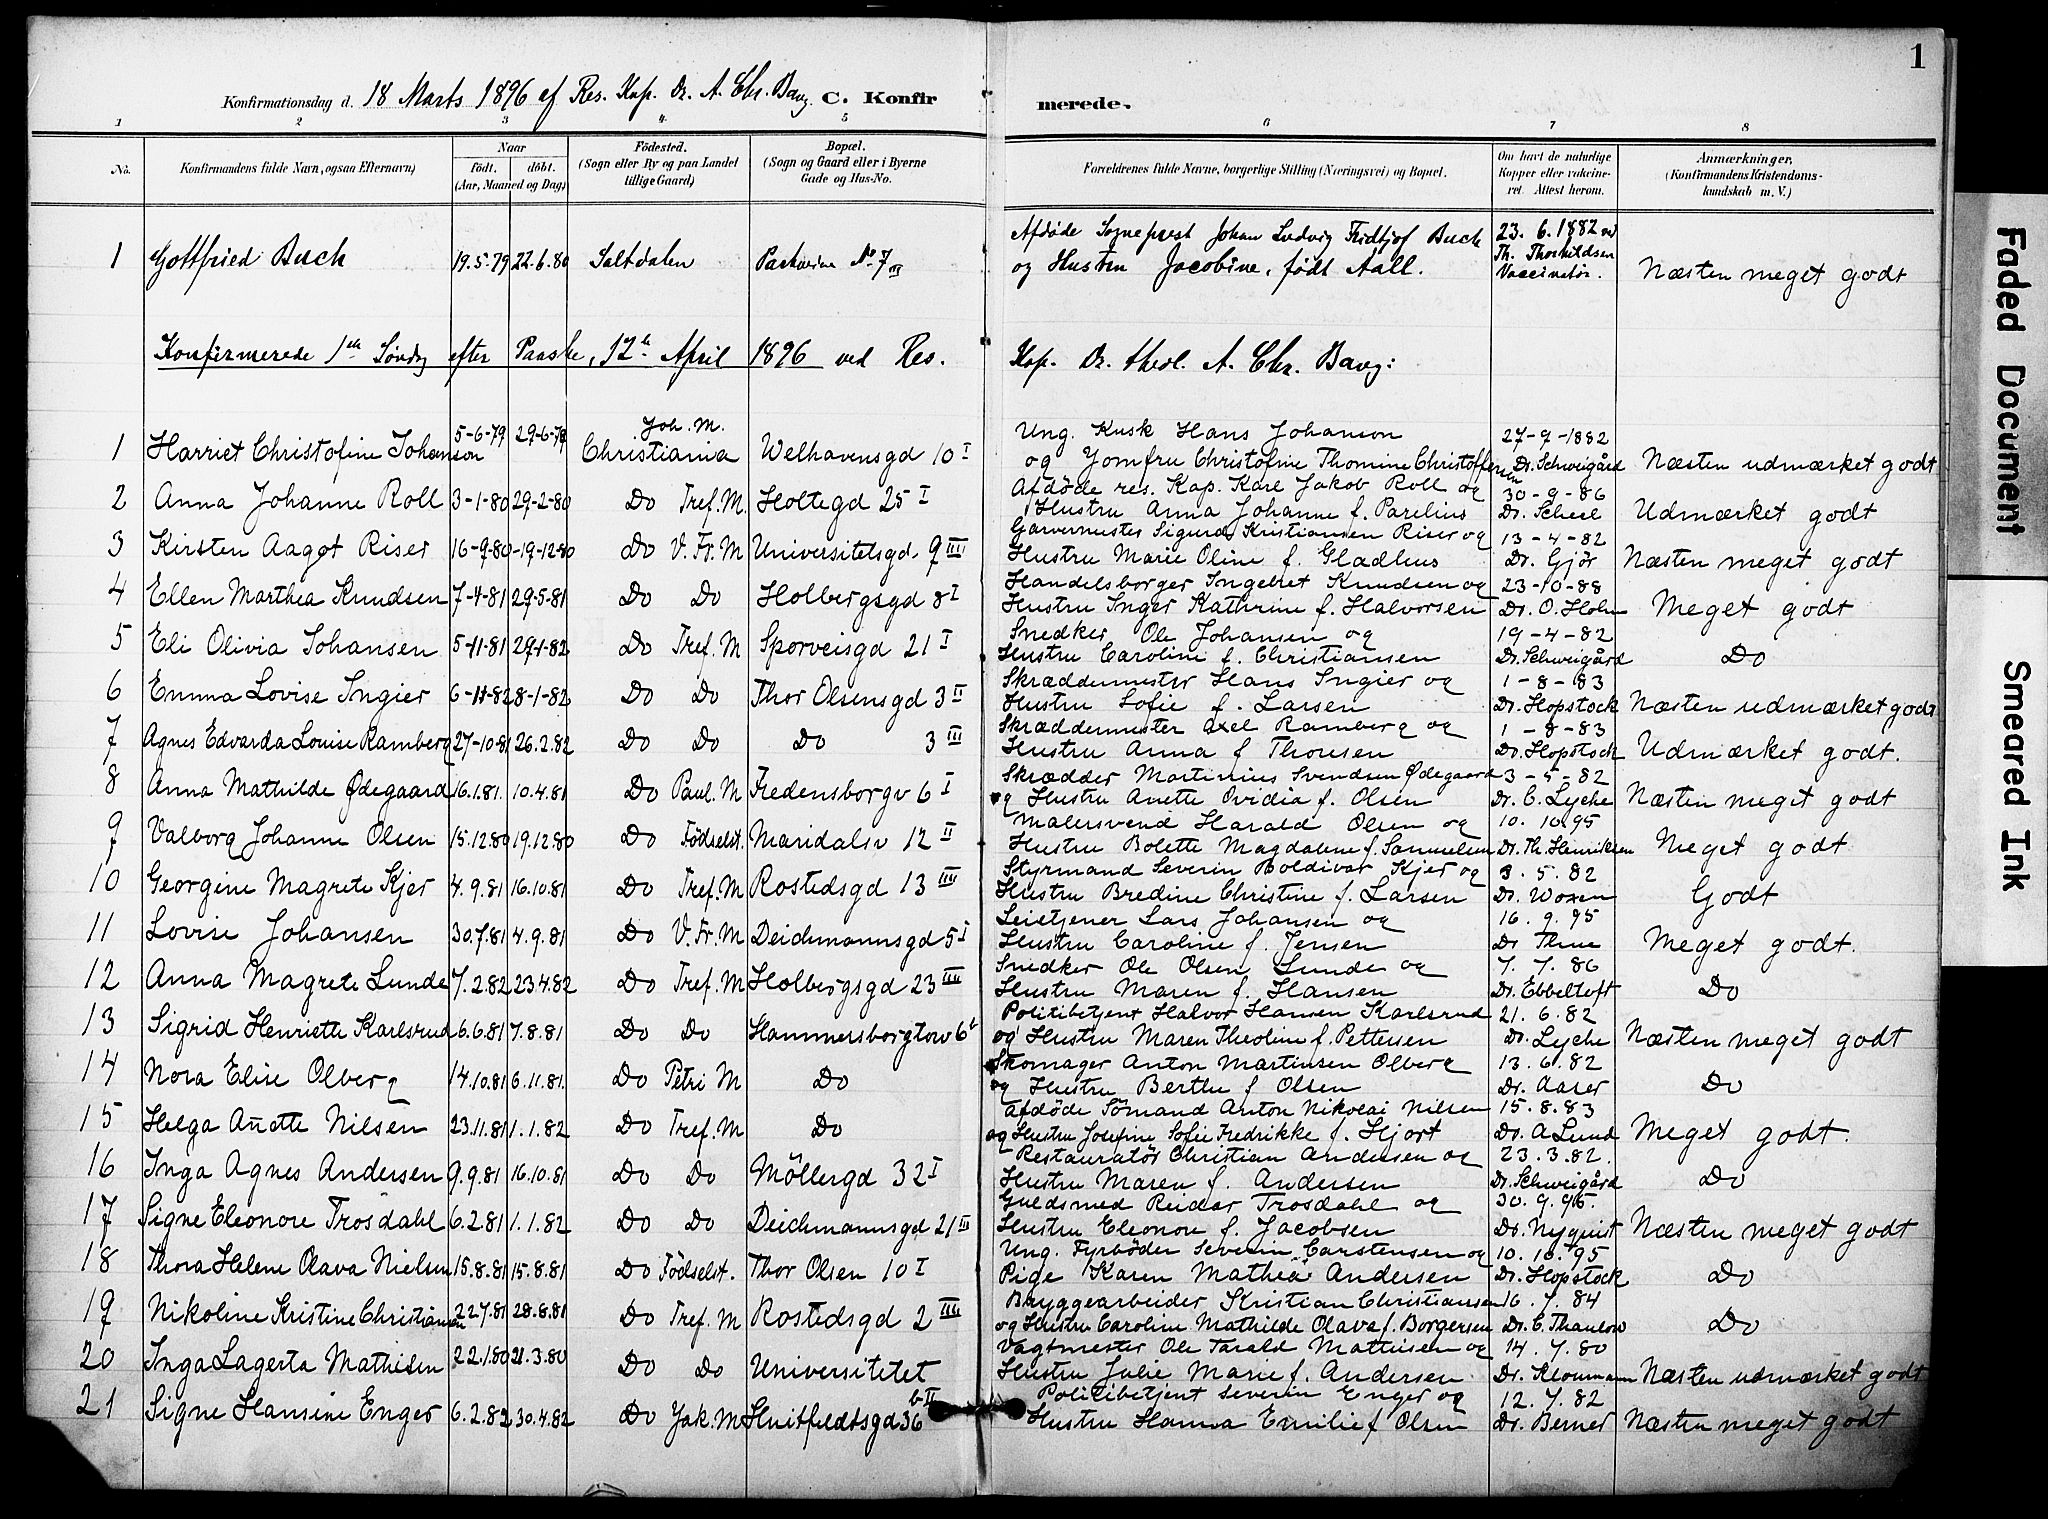 1
Konfirmationsdag d. 18 Marts 1896 af Res. Kap. Dr. A. Chr. Bang. C. Konfirmerede.
1 2 3 4 5 6 7 8
No. Konfirmandens fulde Navn, ogsaa Efternavn) Naar født. døbt. (Aar, Maaned og Dag) Fødested. (Sogn eller By og paa Landet tillige Gaard) Bopæl. (Sogn og Gaard eller i Byerne Gade og Hus-No. Forældrenes fulde Navne, borgerlige Stilling (Næringsvei) og Bopæl. Om havt de naturlige Kopper eller vakcineret. Attest herom. Anmærkninger, (Konfirmandens Kristendomskundskab m. V.)
1 Gottfried Buch 19.5.79 22.6.80 Saltdalen Parkveien No 7 III Afdøde Sogneprest Johan Ludvig Fridtjof Buch og Hustru Jacobine, født Aall. 23. 6. 1882 ved Th. Thorkildsen Vaccinatør. Næsten meget godt
Konfirmerede 1ste Søndag efter Paaske, 12te April 1896 ved Res. Kap. Dr. theol. A. Chr. Bang:
1 Harriet Christofine Johanson 5-6-79 29-6-79 Joh. M. Christiania Welhavensgd 10 I Ung. Kusk Hans Johanson og Jomfru Christofine Thomine Christoffersen 27-9-1882 Dr. Schweigård Næsten udmærket godt
2 Anna Johanne Roll 3-1-80 29-2-80 Do Tref. M. Holtegd 25 I Afdøde res. Kap. Karl Jakob Roll og Hustru Anna Johanne f. Parelius 30-9-86 Dr. Scheel Udmærket godt
3 Kirsten Aagot Riser 16-9-80 19-12-80 Do V. Fr. M Universitetsgd. 9 IIII Garvermester Sigurd Kristiansen Riser og Hustru Marie Oline f. Gladhus 13-4-82 Dr. Gjör Næsten meget godt
4 Ellen Marthea Knudsen 7-4-81 29-5-81 Do Do Holbergsgd 8 I Handelsborger Ingebret Knudsen og Hustru Inger Kathrine f. Halvorsen 23-10-88 Dr. O. Holm Meget godt
5 Eli Olivia Johansen 5-11-81 29-1-82 Do Tref. M Sporveisgd 21 I Snedker Ole Johansen og Hustru Caroline f. Christiansen 19-4-82 Dr. Schweigård Do
6 Emma Lovise Ingier 6-11-82 8-1-82 Do Do Thor Olsensgd 3 II Skræddermester Hans Ingier og Hustru Sofie f. Larsen 1-8-83 Dr. Hopstock Næsten udmærket godt
7 Agnes Edvarda Louise Ramberg 27-10-81 26.2.82 Do Do Do 3 III Skræddermester Axel Ramberg og Hustru Anna f Thoresen 1-8-83 Dr. Hopstock Udmærket godt.
8 Anna Mathilde Ødegaard 16.1.81. 10.4.81 Do Paul. M Fredensborgv 6 I Skrædder Martinius Svendsen Ødegaard og Hustru Anette Ovidia f. Olsen 3-5-82 Dr. C. Lyche Næsten meget godt
9 Valborg Johanne Olsen 15.12.80 19.12.80 Do Födselst. Maridalsv 12 II Malersvend Harald Olsen og Hustru Bolette Magdalene f. Samuelsen 10. 10.95 Dr. Th. Henriksen Meget godt
10 Georgine Magrete Kjer 4.9.81 16.10.81 Do Tref. M Rostedsgd 13 IIII Styrmand Severin Boldivar Kjer og Hustru Bredine Christine f. Larsen 3. 5. 82 Dr. Woxen Godt
11 Lovise Johansen 30.7.81 4.9.81 Do V. Fr. M Deichmannsgd 5 I Leietjener Lars Johansen og Hustru Caroline f. Jensen 16. 9. 95 Dr Thue Meget godt.
12 Anna Magrete Lunde 7.2.82 23.4.82 Do Tref. M Holbergsgd 23 IIII Snedker Ole Olsen Lunde og Hustru Maren f. Hansen 7. 7. 86 Dr. Ebbeltoft Do
13 Sigrid Henriette Karlsrud 6.6.81 7.8.81 Do Do Hammersborgtorv 6 b Politibetjent Halvor Hansen Karlsrud og Hustru Maren Theoline f. Pettersen 21. 6. 82 Dr. Lyche Næsten meget godt
14 Nora Elise Olberg 14.10.81 6.11.81. Do Petri M Do Skomager Anton Martinsen Olberg og Hustru Berthe f Olsen 13. 6. 82 Dr. Aaser Do
15 Helga Anette Nilsen 23.11.81 1.1.82 Do Tref. M Do Afdöde Sömand Anton Nikolai Nilsen og Hustru Josefine Sofie Fredrikke f. Hjort 15. 8. 83 Dr. A Lund Meget godt.
16 Inga Agnes Andersen 9.9.81 16.10.81 Do Do Möllergd 32 I Restauratör Christian Andersen og Hustru Maren f. Andersen 23. 3. 82. Dr. Schweigård Do
17 Signe Eleonore Trosdahl 6.2.81 1.1.82 Do Do Deichmannsgd 21 II Guldsmed Reidar Trosdahl og Hustru Eleonore f. Jacobsen 30. 9. 95. Dr. Nyquist Næsten meget godt
18 Thora Helene Olava Nielsen 15.8.81 15.8.81 Do Födselst. Thor Olsen 10 I Ung. Fyrböder Severin Carstensen og Pige Karen Mathea Andersen 10. 10. 95 Dr. Hopstock Do
19 Nikoline Kristine Christiansen 22.7.81 28.8.81 Do Tref. M Rostedsgd 2 IIII Bryggearbeider Kristian Christiansen og Hustru Caroline Mathilde Olava f. Borgersen 16. 7. 84 Dr. C. Thaulow Do
20 Inga Lagerta Mathisen 22.1.80 21.3.80 Do Do Universitetet Vagtmester Ole Tarald Mathisen og Hustru Julie Marie f. Andersen 14. 7. 80 Dr. Kloumann Næsten udmærket godt
21 Signe Hansine Enger 6.2.82 30.4.82 Do Jak. M Huitfeldtsgd 36 b II Politibetjent Severin Enger og Hustru Hanna Emilie f Olsen 12. 7. 82 Dr. Berner Næsten meget godt
Faded Document
Smeared Ink